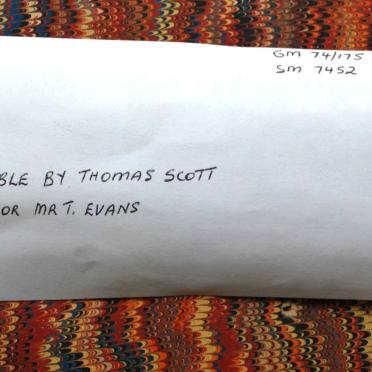 GM 74/175
SM 7452
BLE BY THOMAS SCOTT
OR MR T. EVANS